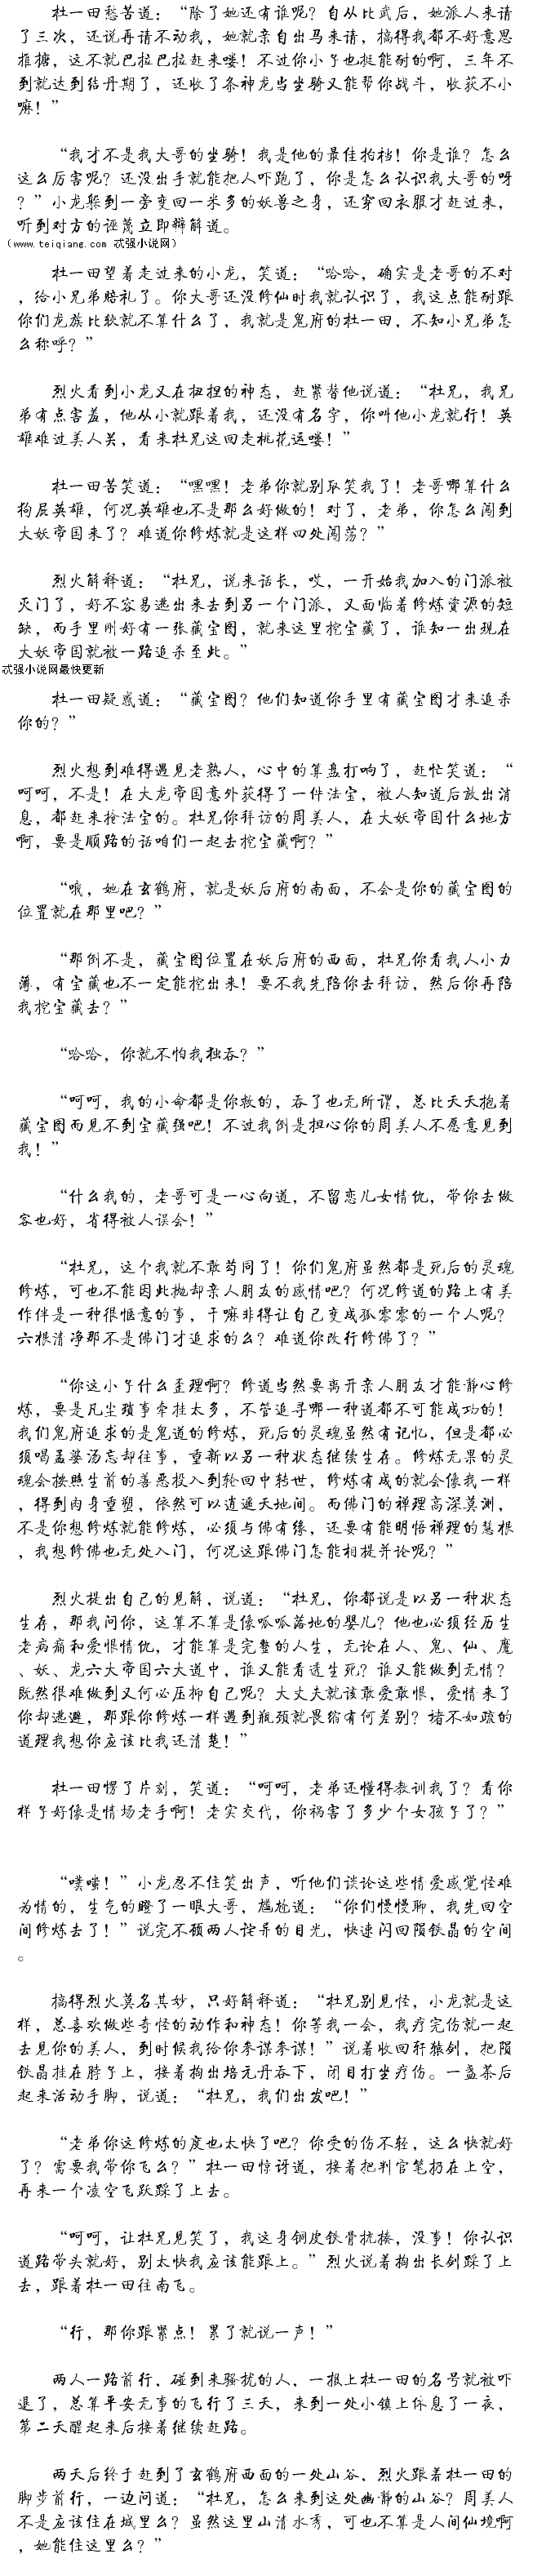 杜一田愁苦道：“除了她还有谁呢？自从比武后，她派人来请
了三次，还说再请不动我，她就亲自出马来请，搞得我都不好意思
推搪，这不就巴拉巴拉赶来喽！不过你小子也挺能耐的啊，三年不
到就达到结丹期了，还收了条神龙当坐骑又能帮你战斗，收获不小
嘛！”
“我才不是我大哥的坐骑！我是他的最佳拍档！你是谁？怎么
这么厉害呢？还没出手就能把人吓跑了，你是怎么认识我大哥的呀
？”小龙躲到一旁变回一米多的妖兽之身，还穿回衣服才赶过来，
听到对方的诬蔑立即辩解道。
（www.teiqiang.com 忒强小说网）
杜一田望着走过来的小龙，笑道：“哈哈，确实是老哥的不对
，给小兄弟赔礼了。你大哥还没修仙时我就认识了，我这点能耐跟
你们龙族比较就不算什么了，我就是鬼府的杜一田，不知小兄弟怎
么称呼？”
烈火看到小龙又在扭捏的神态，赶紧替他说道：“杜兄，我兄
弟有点害羞，他从小就跟着我，还没有名字，你叫他小龙就行！英
雄难过美人关，看来杜兄这回走桃花运喽！”
杜一田苦笑道：“嘿嘿！老弟你就别取笑我了！老哥哪算什么
狗屁英雄，何况英雄也不是那么好做的！对了，老弟，你怎么闯到
大妖帝国来了？难道你修炼就是这样四处闯荡？”
烈火解释道：“杜兄，说来话长，哎，一开始我加入的门派被
灭门了，好不容易逃出来去到另一个门派，又面临着修炼资源的短
缺，而手里刚好有一张藏宝图，就来这里挖宝藏了，谁知一出现在
大妖帝国就被一路追杀至此。”
忒强小说网最快更新
杜一田疑惑道：“藏宝图？他们知道你手里有藏宝图才来追杀
你的？”
烈火想到难得遇见老熟人，心中的算盘打响了，赶忙笑道：“
呵呵，不是！在大龙帝国意外获得了一件法宝，被人知道后放出消
息，都赶来抢法宝的。杜兄你拜访的周美人，在大妖帝国什么地方
啊，要是顺路的话咱们一起去挖宝藏啊？”
“哦，她在玄鹤府，就是妖后府的南面，不会是你的藏宝图的
位置就在那里吧？”
“那倒不是，藏宝图位置在妖后府的西面，杜兄你看我人小力
薄，有宝藏也不一定能挖出来！要不我先陪你去拜访，然后你再陪
我挖宝藏去？”
“哈哈，你就不怕我独吞？”
“呵呵，我的小命都是你救的，吞了也无所谓，总比天天抱着
藏宝图而见不到宝藏强吧！不过我倒是担心你的周美人不愿意见到
我！”
“什么我的，老哥可是一心向道，不留恋儿女情仇，带你去做
客也好，省得被人误会！”
“杜兄，这个我就不敢苟同了！你们鬼府虽然都是死后的灵魂
修炼，可也不能因此抛却亲人朋友的感情吧？何况修道的路上有美
作伴是一种很惬意的事，干嘛非得让自己变成孤零零的一个人呢？
六根清净那不是佛门才追求的么？难道你改行修佛了？”
“你这小子什么歪理啊？修道当然要离开亲人朋友才能静心修
炼，要是凡尘琐事牵挂太多，不管追寻哪一种道都不可能成功的！
我们鬼府追求的是鬼道的修炼，死后的灵魂虽然有记忆，但是都必
须喝孟婆汤忘却往事，重新以另一种状态继续生存。修炼无果的灵
魂会按照生前的善恶投入到轮回中转世，修炼有成的就会像我一样
，得到肉身重塑，依然可以逍遥天地间。而佛门的禅理高深莫测，
不是你想修炼就能修炼，必须与佛有缘，还要有能明悟禅理的慧根
，我想修佛也无处入门，何况这跟佛门怎能相提并论呢？”
烈火提出自己的见解，说道：“杜兄，你都说是以另一种状态
生存，那我问你，这算不算是像呱呱落地的婴儿？他也必须经历生
老病痛和爱恨情仇，才能算是完整的人生，无论在人、鬼、仙、魔
、妖、龙六大帝国六大道中，谁又能看透生死？谁又能做到无情？
既然很难做到又何必压抑自己呢？大丈夫就该敢爱敢恨，爱情来了
你却逃避，那跟你修炼一样遇到瓶颈就畏缩有何差别？堵不如疏的
道理我想你应该比我还清楚！”
杜一田愣了片刻，笑道：“呵呵，老弟还懂得教训我了？看你
样子好像是情场老手啊！老实交代，你祸害了多少个女孩子了？”
“噗嗤！”小龙忍不住笑出声，听他们谈论这些情爱感觉怪难
为情的，生气的瞪了一眼大哥，尴尬道：“你们慢慢聊，我先回空
间修炼去了！”说完不顾两人诧异的目光，快速闪回陨铁晶的空间
。
搞得烈火莫名其妙，只好解释道：“杜兄别见怪，小龙就是这
样，总喜欢做些奇怪的动作和神态！你等我一会，我疗完伤就一起
去见你的美人，到时候我给你参谋参谋！”说着收回轩辕剑，把陨
铁晶挂在脖子上，接着掏出培元丹吞下，闭目打坐疗伤。一盏茶后
起来活动手脚，说道：“杜兄，我们出发吧！”
“老弟你这修炼的度也太快了吧？你受的伤不轻，这么快就好
了？需要我带你飞么？”杜一田惊讶道，接着把判官笔扔在上空，
再来一个凌空飞跃踩了上去。
“呵呵，让杜兄见笑了，我这身铜皮铁骨抗揍，没事！你认识
道路带头就好，别太快我应该能跟上。”烈火说着掏出长剑踩了上
去，跟着杜一田往南飞。
“行，那你跟紧点！累了就说一声！”
两人一路前行，碰到来骚扰的人，一报上杜一田的名号就被吓
退了，总算平安无事的飞行了三天，来到一处小镇上休息了一夜，
第二天醒起来后接着继续赶路。
两天后终于赶到了玄鹤府西面的一处山谷，烈火跟着杜一田的
脚步前行，一边问道：“杜兄，怎么来到这处幽静的山谷？周美人
不是应该住在城里么？虽然这里山清水秀，可也不算是人间仙境啊
，她能住这里么？”